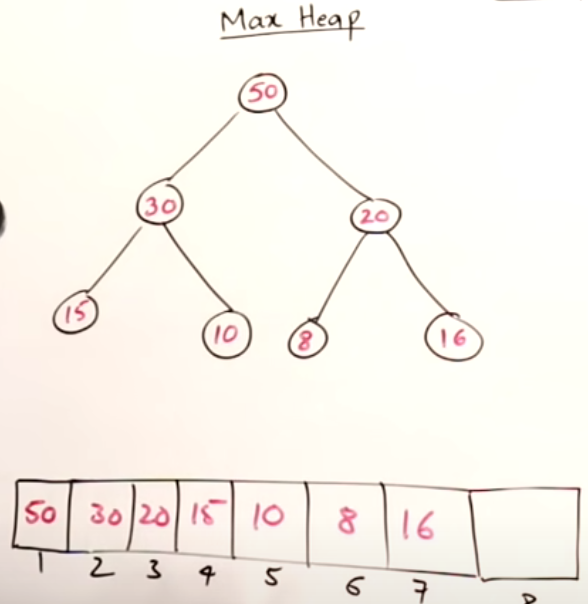 Max Heap
50
30 20
15 10 8 16
50 30 20 15 10 8 16
1 2 3 4 5 6 7